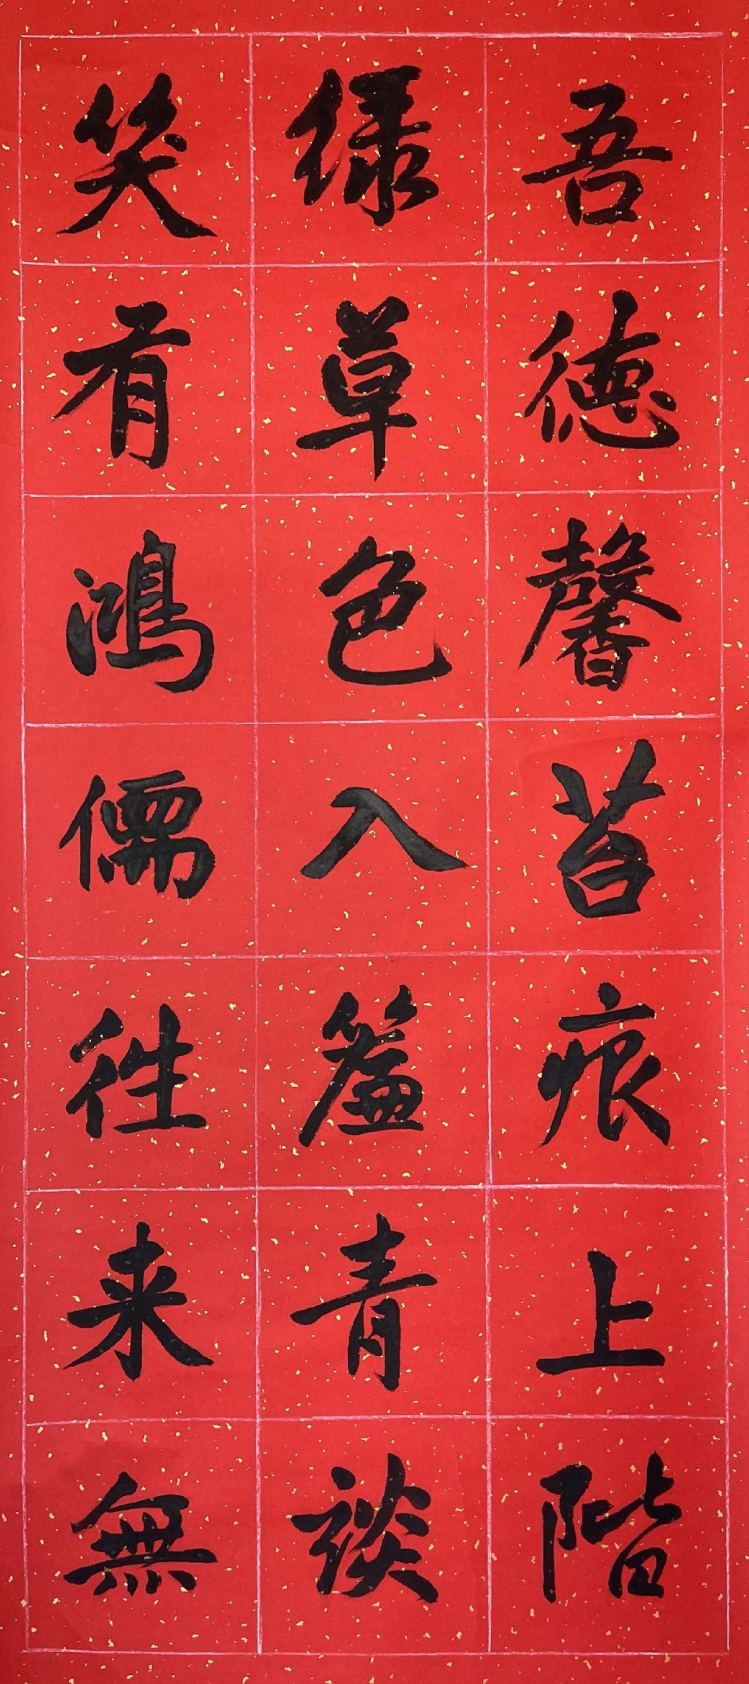 吾德馨苔痕上階
緑草色入簾青談
笑有鴻儒往来無